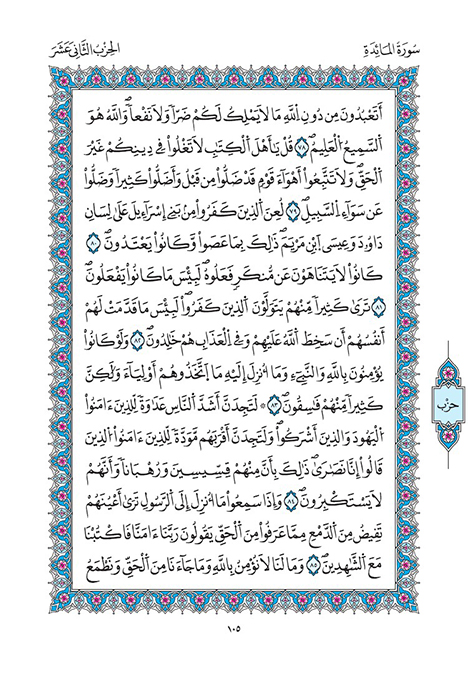 سورة المائدة
الحزب الثاني عشر
أَتَعْبُدُونَ مِن دُونِ اِ۬للَّهِ مَا لَا يَمْلِكُ لَكُمْ ضَرّاٗ وَلَا نَفْعاٗۖ وَاللَّهُ هُوَ
اَ۬لسَّمِيعُ اُ۬لْعَلِيمُۖ ٧٨ قُلْ يَٰأَهْلَ اَ۬لْكِتَٰبِ لَا تَغْلُواْ فِي دِينِكُمْ غَيْرَ
اَ۬لْحَقِّۖ وَلَا تَتَّبِعُواْ أَهْوَآءَ قَوْمٖ قَد ضَّلُّواْ مِن قَبْلُ وَأَضَلُّواْ كَثِيراٗ وَضَلُّواْ
عَن سَوَآءِ اِ۬لسَّبِيلِۖ ٧٩ لُعِنَ اَ۬لذِينَ كَفَرُواْ مِنۢ بَنِي إِسْرَآءِيلَ عَلَىٰ لِسَانِ
دَاوُۥدَ وَعِيسَى اَ۪بْنِ مَرْيَمَۖ ذَٰلِكَ بِمَا عَصَواْ وَّكَانُواْ يَعْتَدُونَۖ ٨٠
كَانُواْ لَا يَتَنَاهَوْنَ عَن مُّنكَرٖ فَعَلُوهُۖ لَبِئْسَ مَا كَانُواْ يَفْعَلُونَۖ
٨١ تَرَىٰ كَثِيراٗ مِّنْهُمْ يَتَوَلَّوْنَ اَ۬لذِينَ كَفَرُواْۖ لَبِئْسَ مَا قَدَّمَتْ لَهُمُۥ
أَنفُسُهُمُۥ أَن سَخِطَ اَ۬للَّهُ عَلَيْهِمْ وَفِي اِ۬لْعَذَابِ هُمْ خَٰلِدُونَۖ ٨٢ وَلَوْ كَانُواْ
يُؤْمِنُونَ بِاللَّهِ وَالنَّبِيٓءِ وَمَآ أُنزِلَ إِلَيْهِ مَا اَ۪تَّخَذُوهُمُۥ أَوْلِيَآءَ وَلَٰكِنَّ
كَثِيراٗ مِّنْهُمْ فَٰسِقُونَۖ ٨٣ ۞ لَتَجِدَنَّ أَشَدَّ اَ۬لنَّاسِ عَدَٰوَةٗ لِّلذِينَ ءَامَنُواْ
اُ۬لْيَهُودَ وَالذِينَ أَشْرَكُواْۖ وَلَتَجِدَنَّ أَقْرَبَهُم مَّوَدَّةٗ لِّلذِينَ ءَامَنُواْ اُ۬لذِينَ
قَالُواْ إِنَّا نَصَٰرَىٰۖ ذَٰلِكَ بِأَنَّ مِنْهُمْ قِسِّيسِينَ وَرُهْبَاناٗ وَأَنَّهُمْ
لَا يَسْتَكْبِرُونَۖ ٨٤ وَإِذَا سَمِعُواْ مَآ أُنزِلَ إِلَى اَ۬لرَّسُولِ تَرَىٰ أَعْيُنَهُمْ
تَفِيضُ مِنَ اَ۬لدَّمْعِ مِمَّا عَرَفُواْ مِنَ اَ۬لْحَقِّ يَقُولُونَ رَبَّنَآ ءَامَنَّا فَاكْتُبْنَا
مَعَ اَ۬لشَّٰهِدِينَۖ ٨٥ وَمَا لَنَا لَا نُؤْمِنُ بِاللَّهِ وَمَا جَآءَنَا مِنَ اَ۬لْحَقِّ وَنَطْمَعُ
حزب
١٠٥